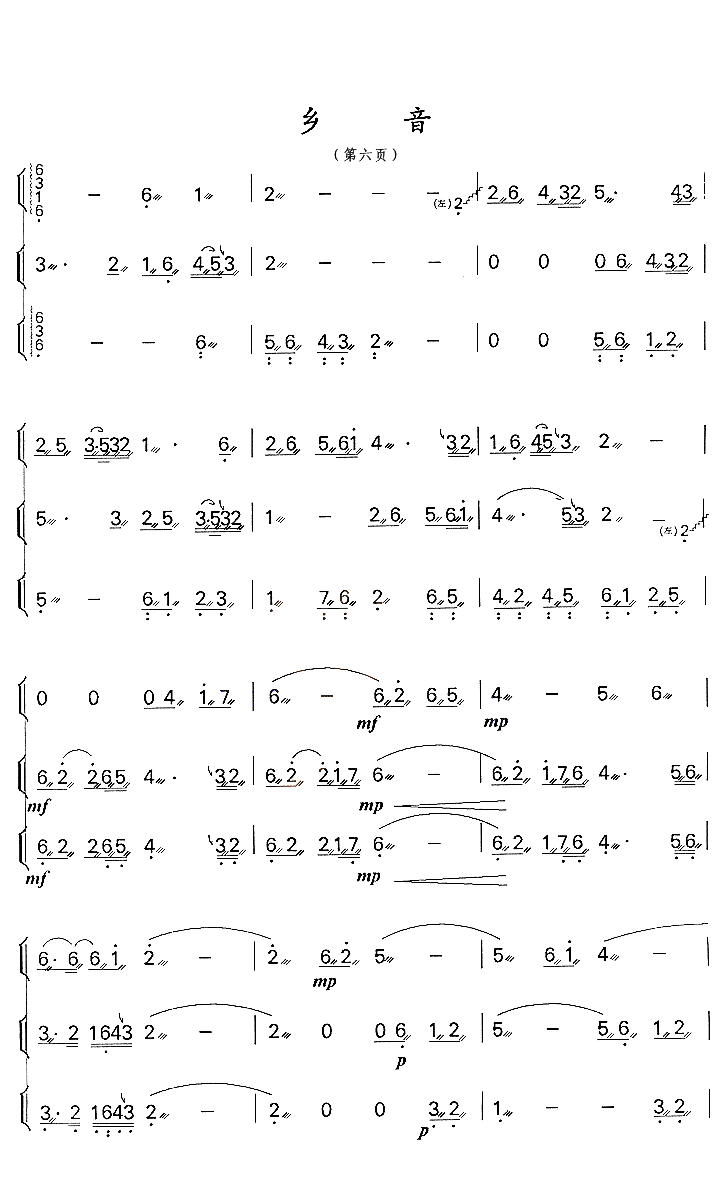 乡 音
(第六页)
6 3 1 6 – 6 1 | 2 – – – (左) 2 | 2 6 4 3 2 5 · 4 3 |
3 · 2 1 6 4 5 3 | 2 – – – | 0 0 0 6 4 3 2 |
6 3 6 – – 6 | 5 6 4 3 2 – | 0 0 5 6 1 2 |
2 5 3 · 5 3 2 1 · 6 | 2 6 5 6 1 4 · 3 2 | 1 6 4 5 3 2 – |
5 · 3 2 5 3 · 5 3 2 | 1 – 2 6 5 6 1 | 4 · 5 3 2 – (左) 2
5 – 6 1 2 3 | 1 7 6 2 6 5 | 4 2 4 5 6 1 2 5 |
0 0 0 4 1 7 | 6 – 6 2 6 5 | 4 – 5 6 |
mf mp
6 2 2 6 5 4 · 3 2 | 6 2 2 1 7 6 – | 6 2 1 7 6 4 · 5 6 |
mf mp
6 2 2 6 5 4 3 2 | 6 2 2 1 7 6 – | 6 2 1 7 6 4 · 5 6 |
mf mp
6 · 6 6 1 2 – | 2 6 2 5 – | 5 6 1 4 – |
mp
3 · 2 1 6 4 3 2 – | 2 0 0 6 1 2 | 5 – 5 6 1 2 |
p
3 · 2 1 6 4 3 2 – | 2 0 0 3 2 | 1 – – 3 2 |
p